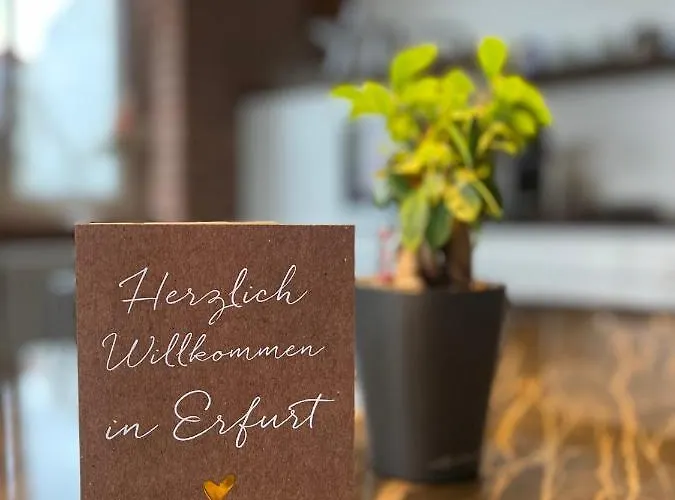 Herzlich
Willkommen
in Erfurt